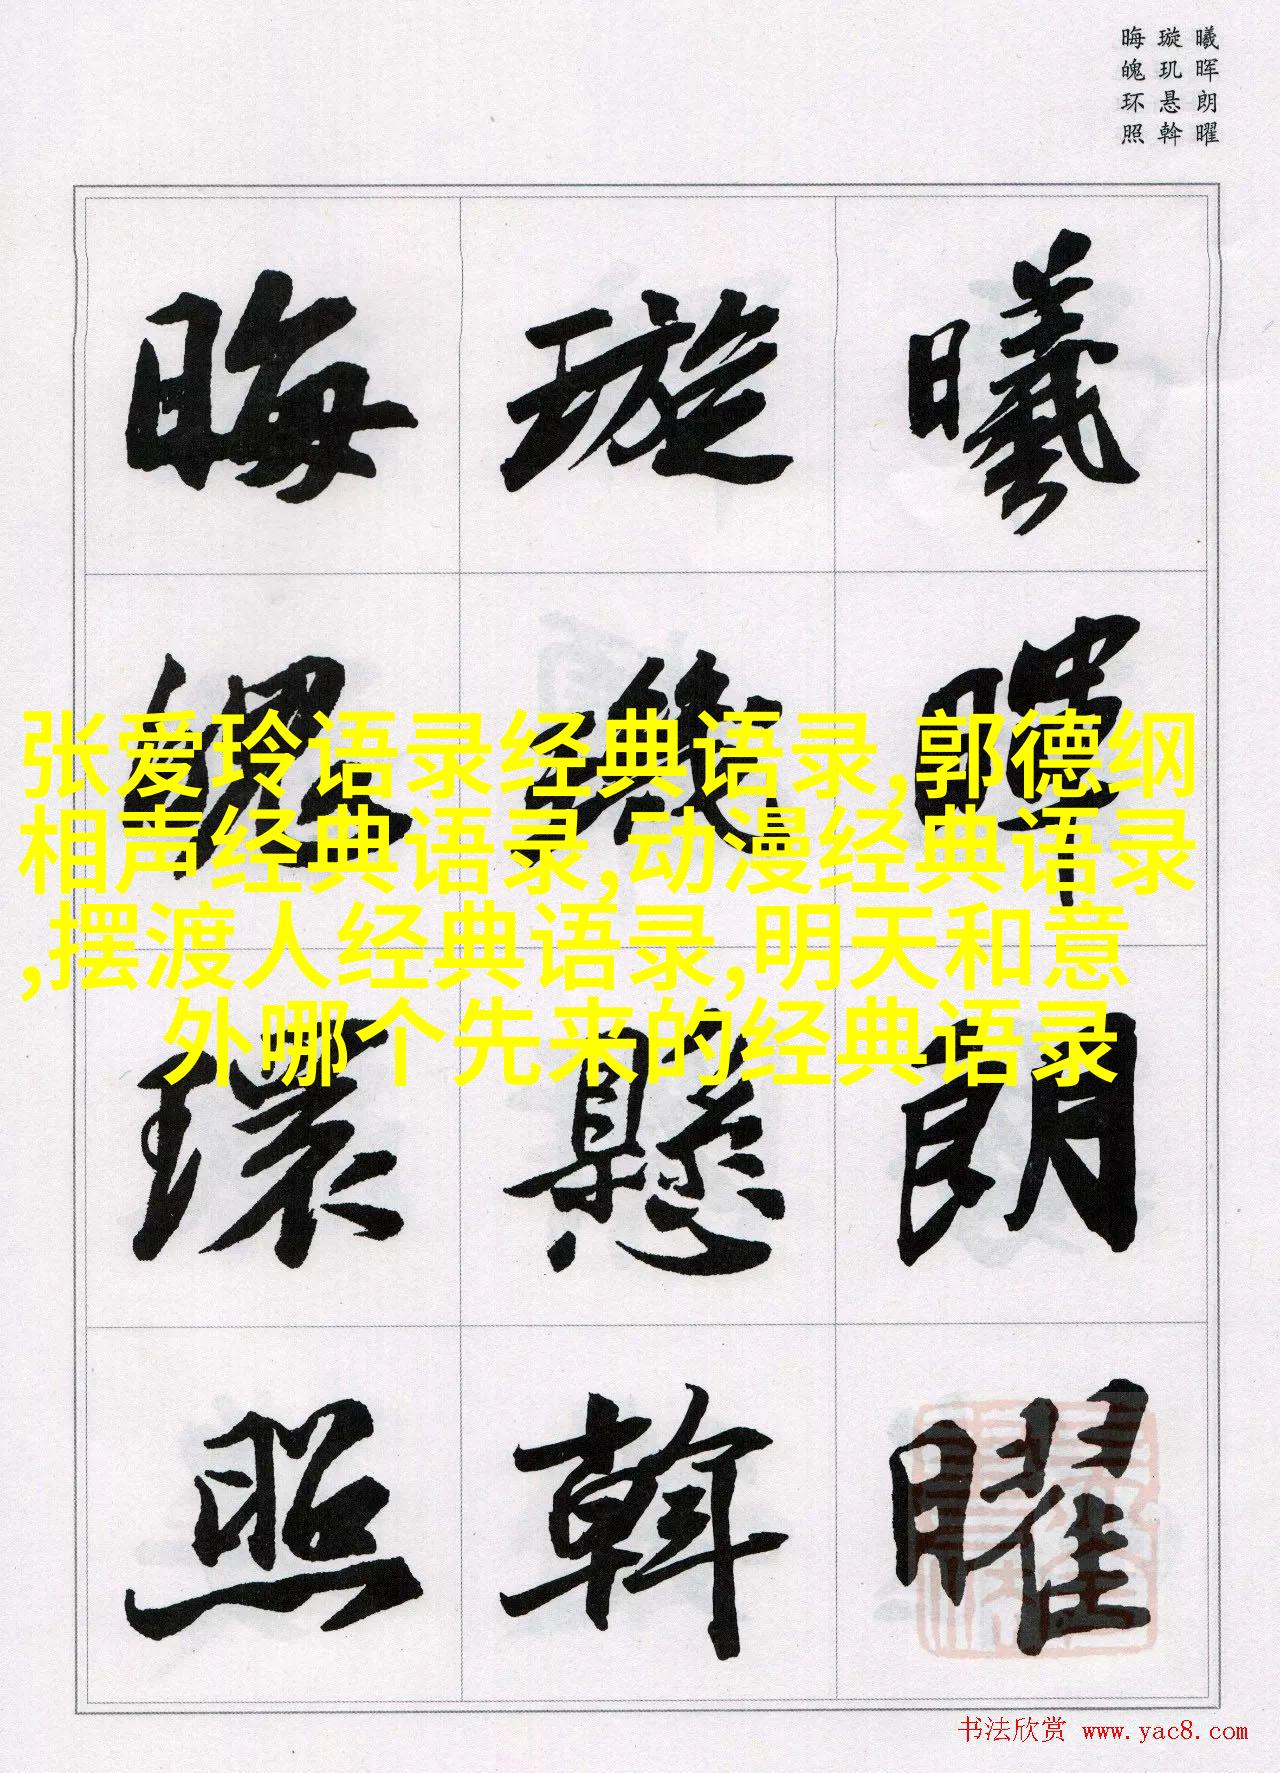 曦晖朗曜
璇玑悬斡
晦魄环照
曦暉朗曜
璇璣懸斡
晦魄環照
张爱玲语录经典语录,郭德纲
相声经典语录,动漫经典语录
,摆渡人经典语录,明天和意
外哪个先来的经典语录
书法欣赏 www.yac8.com